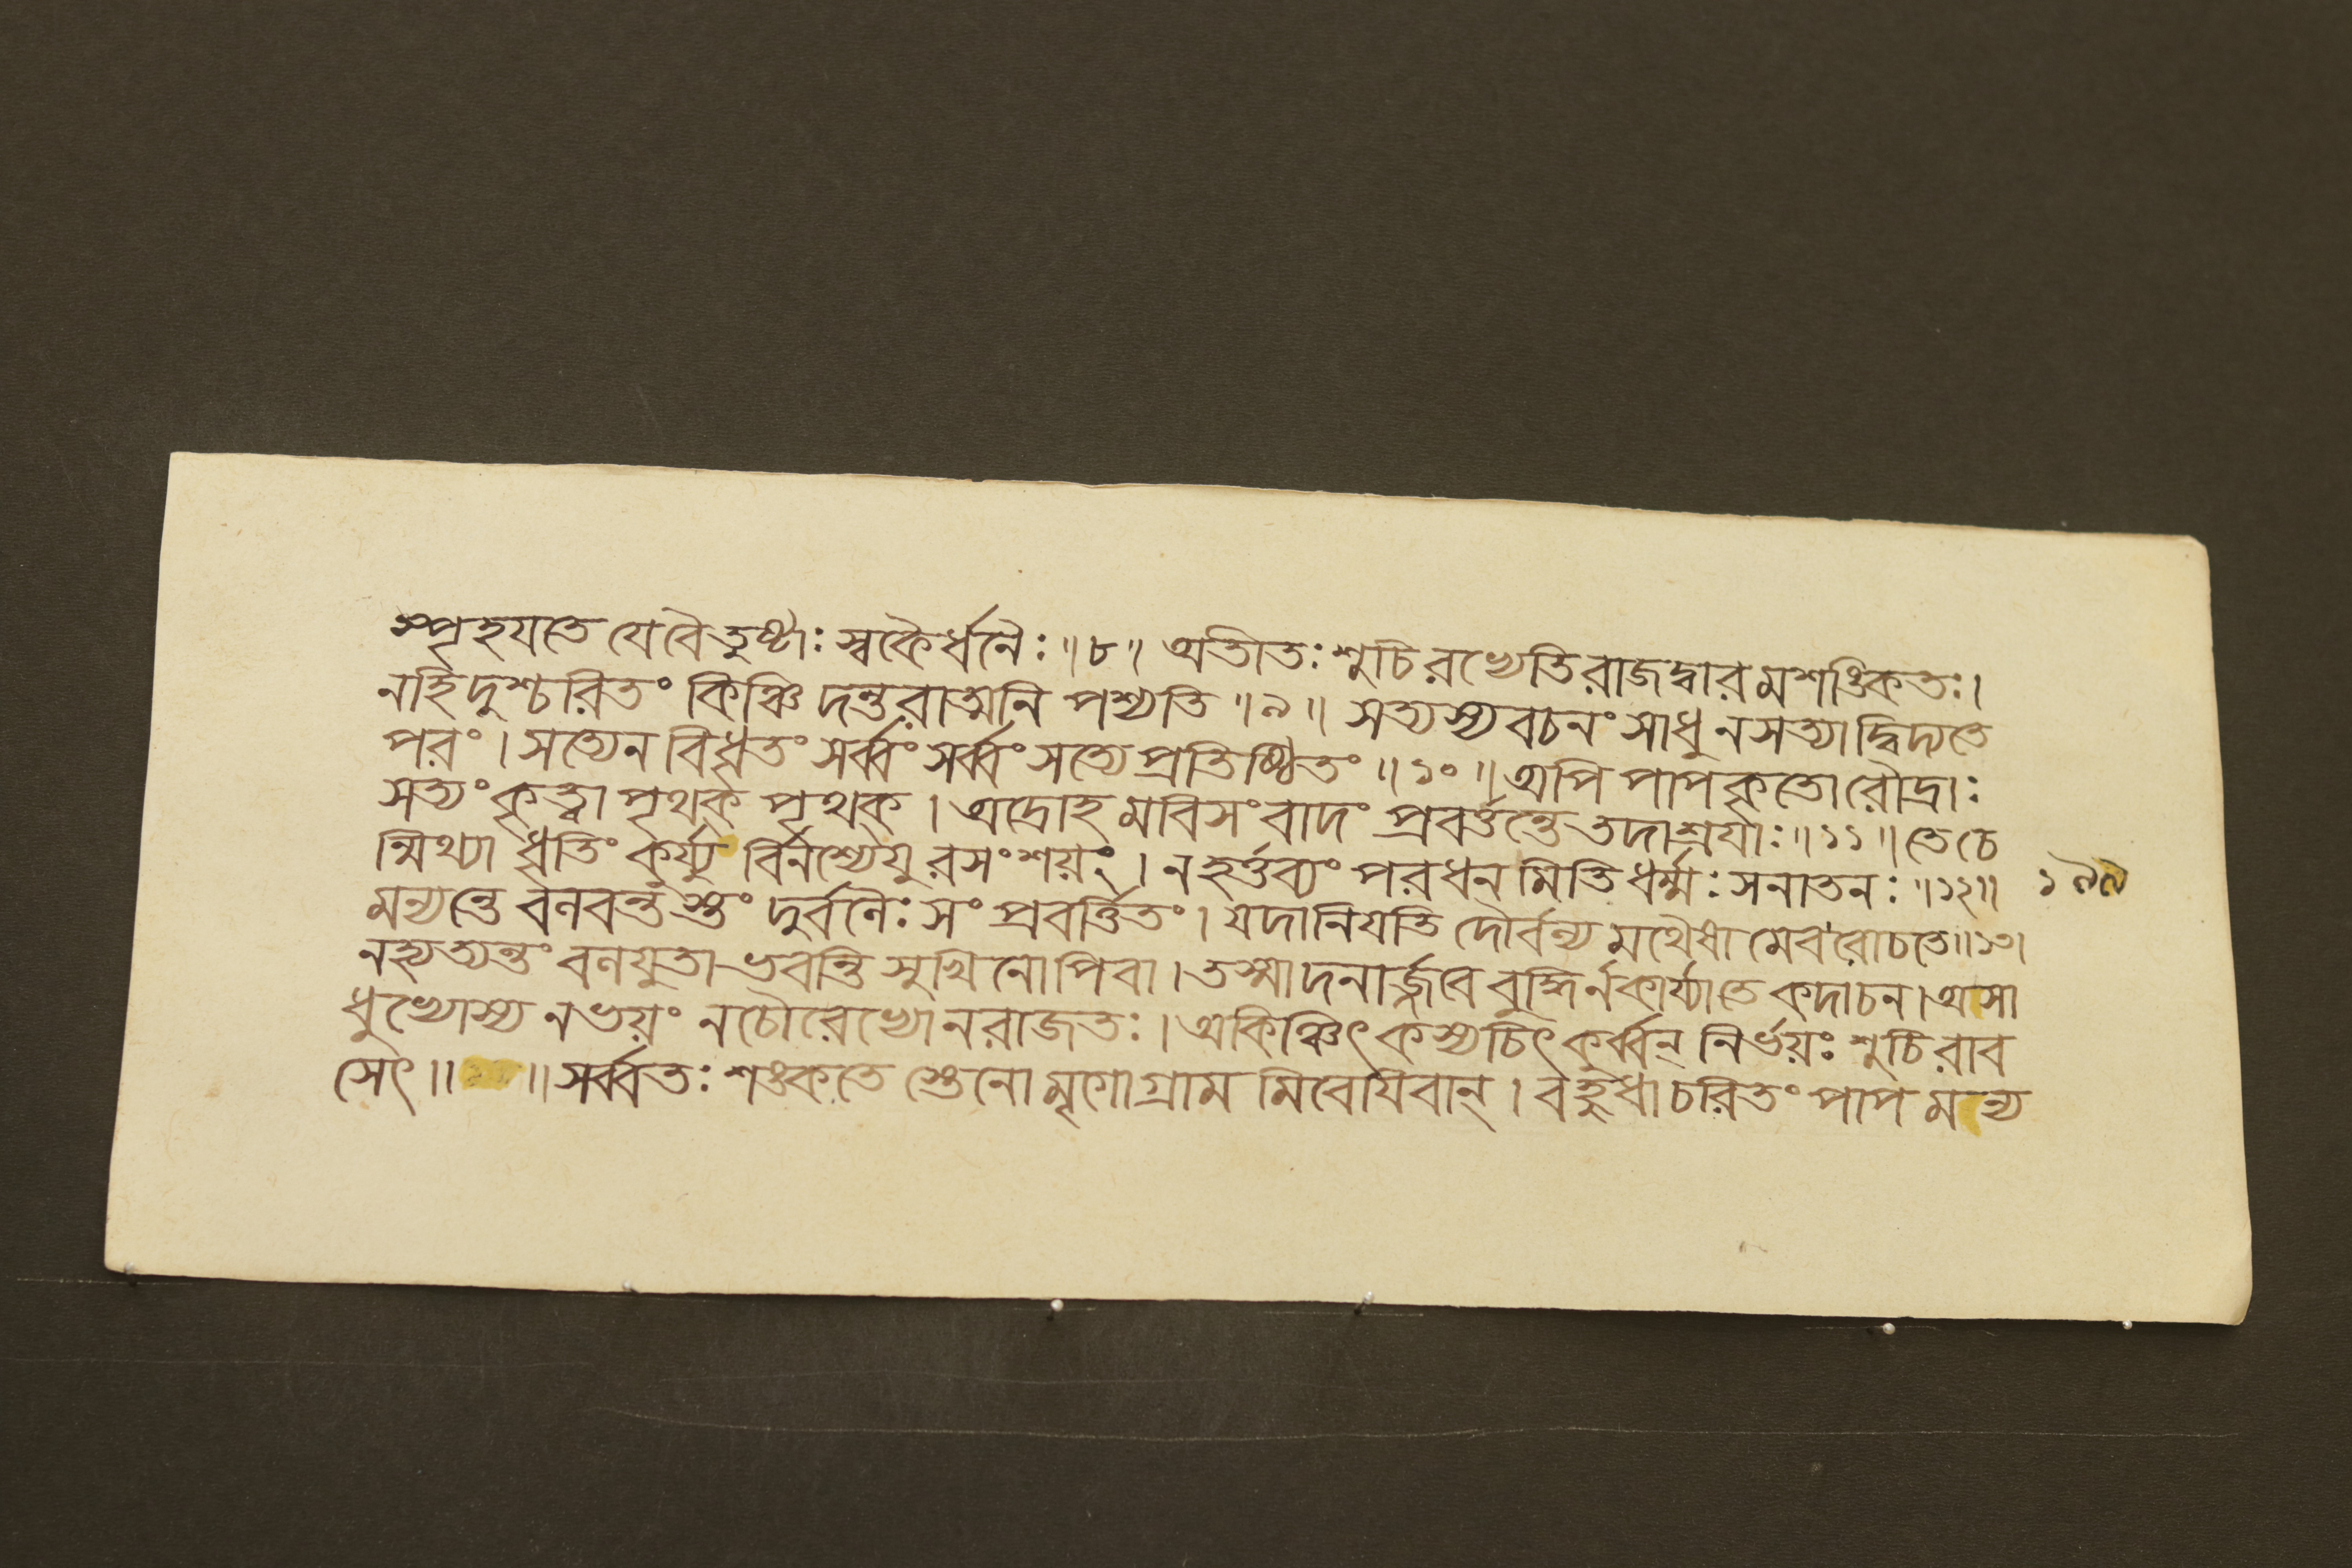 স্পৃহযতে যেবৈতুষ্টাঃ স্বকৈর্ধনৈঃ ॥৮॥ অতীতঃ শুচিরভ্যেতিরাজদ্বারমশঙ্কিতঃ।
নহিদুশ্চরিতং কিঞ্চিদন্তরাত্মনি পশ্যতি ॥৯॥ সত্যস্যবচনং সাধুনসত্যাদ্বিদ্যতে
পরং। সত্যেন বিধৃতং সর্ব্বং সর্ব্বং সত্যে প্রতিষ্ঠিতং ॥১০॥ অপি পাপকৃতো রৌদ্রাঃ
সত্যং কৃত্বা পৃথক্ পৃথক্। অদ্রোহমবিসংবাদং প্রবর্ত্তন্তে তদাশ্রযাঃ ॥১১॥ তে চে
ন্মিথ্যা ধৃতিং কুর্য্যু র্বিনশ্যেযুরসংশয়ং। ন হর্ত্তব্যং পরধনমিতি ধর্ম্মঃ সনাতনঃ ॥১২॥ ১৯৯
মন্যন্তে বলবন্তস্তং দুর্বলৈঃ সংপ্রবর্ত্তিতং। যদানিযতি দৌর্বল্যমথৈষামেব রোচতে॥১৩।
নহ্যত্যন্তং বলযুতা ভবন্তি সুখিনোপিবা। তস্মাদনার্জ্জবে বুদ্ধির্নকার্য্যাতে কদাচন। অসা
ধুভ্যোস্য নভয়ং নচৌরেভ্যোনরাজতঃ। অকিঞ্চিৎ কস্যচিৎ কুর্ব্বন্ নির্ভয়ঃ শুচিরাব
সেৎ॥ ॥ সর্ব্বতঃ শঙ্কতে স্তেনো মৃগোগ্রামমিবেযিবান্। বহুধাচরিতং পাপমন্য